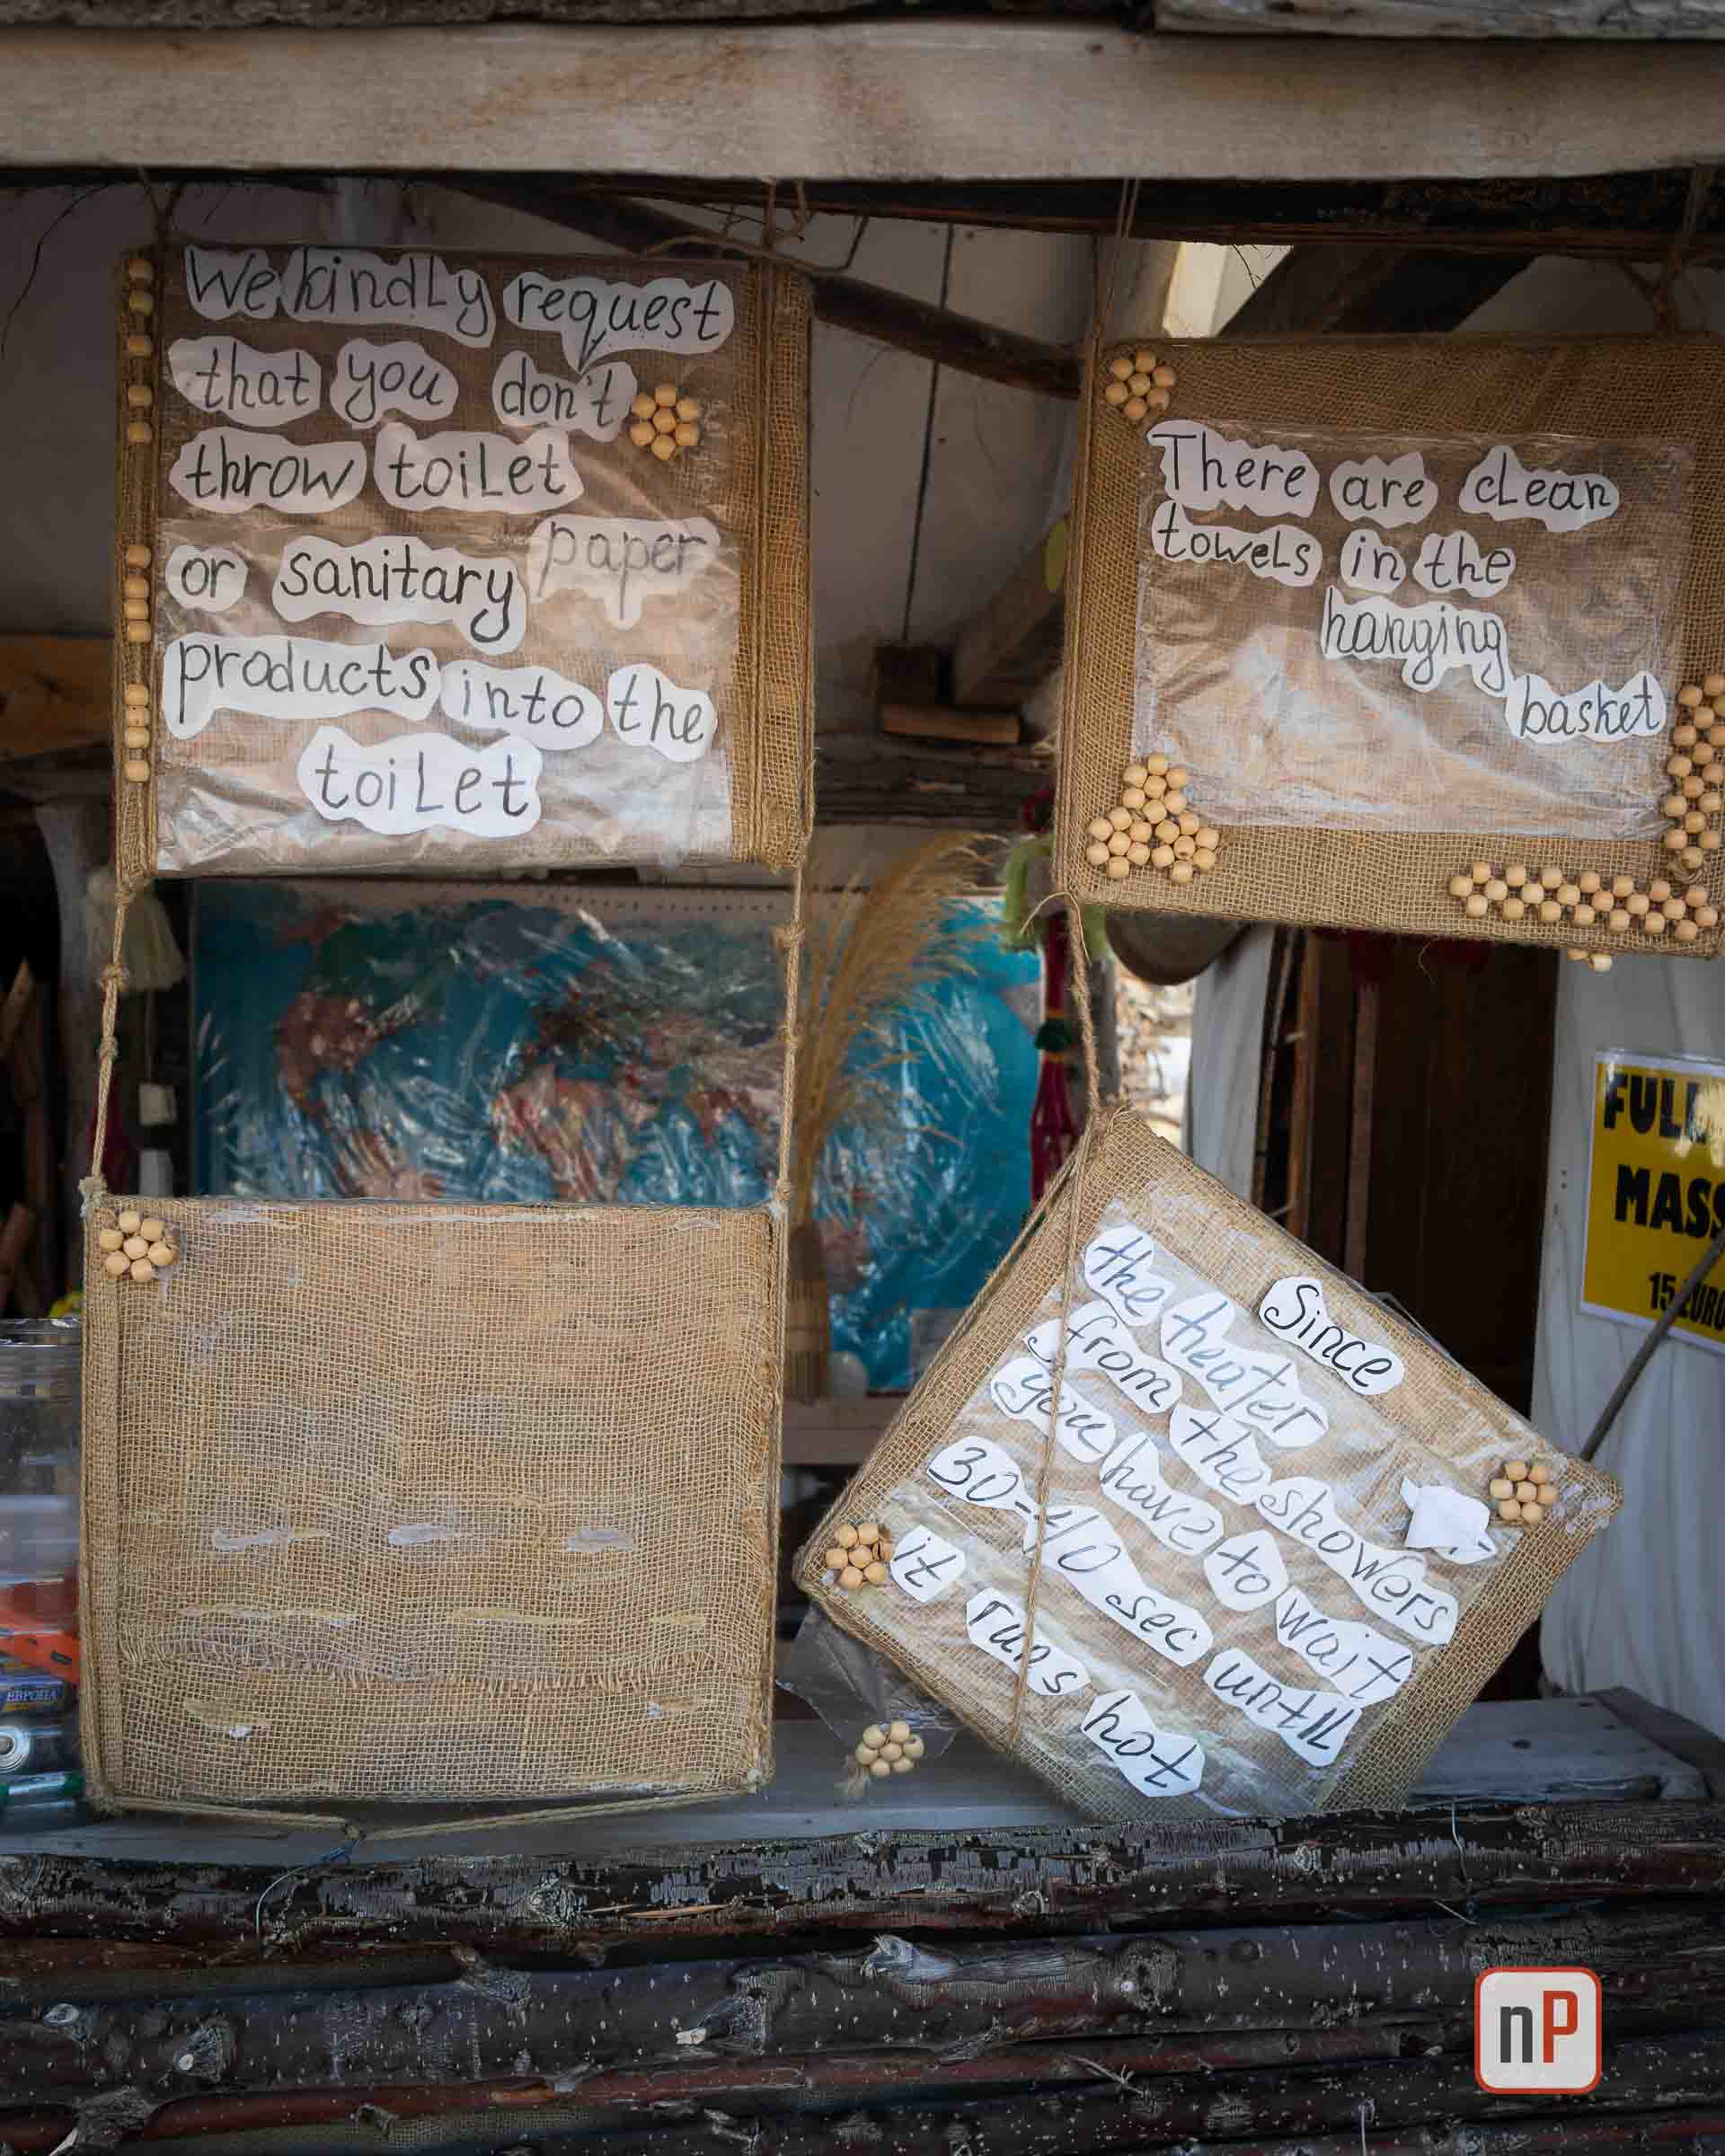 We kindly request
that you don't
throw toilet
paper
or sanitary
products into the
toilet
There are clean
towels in the
hanging
basket
Since
the heater
from the showers
you have to wait
30-40 sec until
it runs hot
FULL
MASS
15 EURO
ЕВРОПА
nP